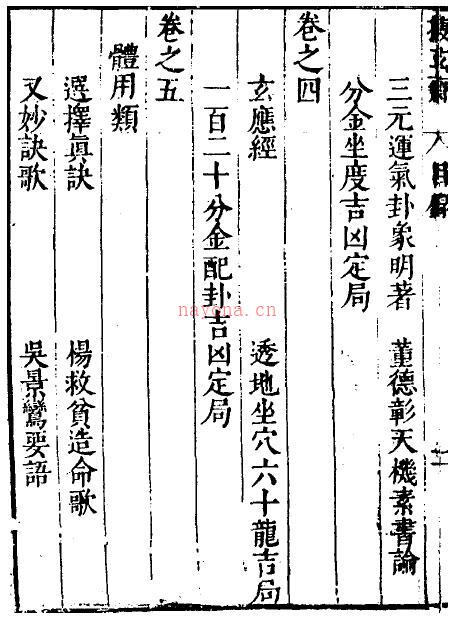 三元運氣卦象明著　董德彰天機素書論
分金坐度吉凶定局
卷之四
玄應經　透地坐穴六十龍吉局
一百二十分金配卦吉凶定局
卷之五
體用類
選擇真訣　楊救貧造命歌
又妙訣歌　吳景鸞要語
nayona.cn